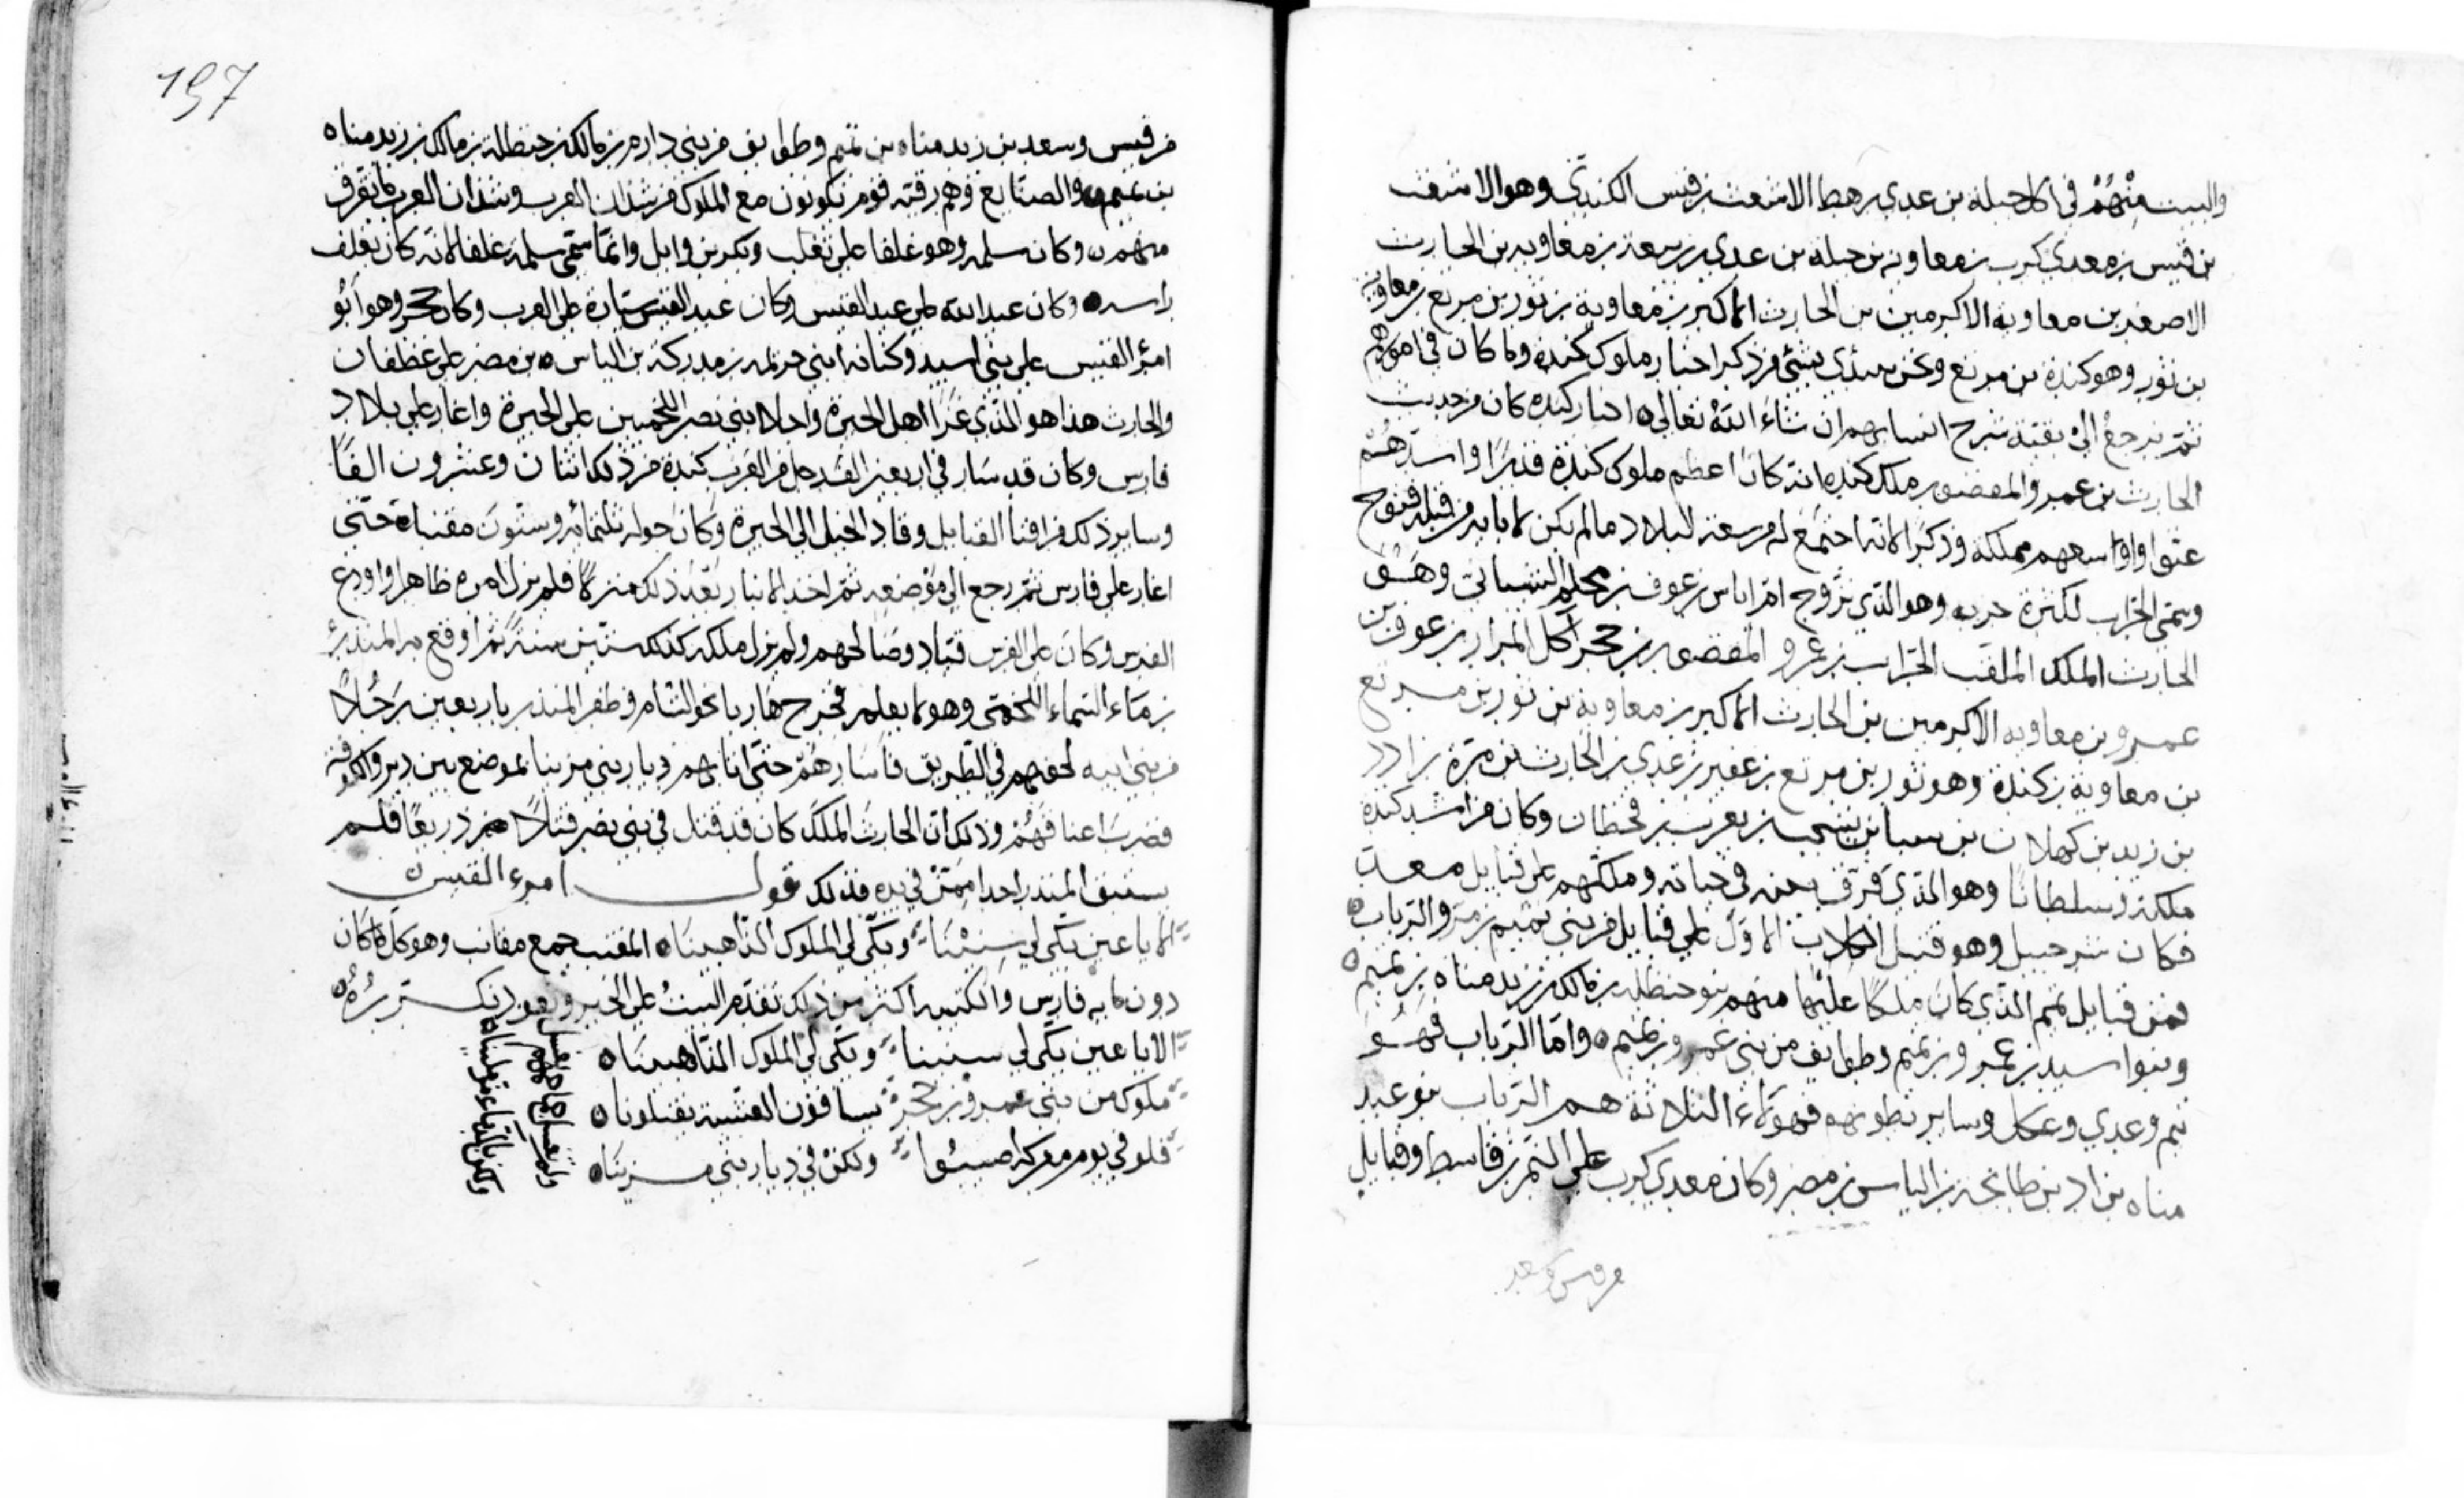 والبيت منهم في آل جبلة بن عدي رهط الاشعث بن قيس الكندي وهو الاشعث
بن قيس بن معدي كرب بن معاوية بن جبلة بن عدي بن ربيعة بن معاوية بن الحارث
الاصغر بن معاوية الاكرمين بن الحارث الاكبر بن معاوية بن ثور بن مرتع بن معاوية
بن ثور وهو كندة بن مرتع ونحن نبتدي بشيء من ذكر اخبار ملوك كندة وما كان في امورهم
ثم نرجع الى بقية شرح انسابهم ان شاء الله تعالى اخبار كندة كان من حديث
الحارث بن عمرو المقصور ملك كندة انه كان اعظم ملوك كندة قدرا واشدهم
عتوا واوسعهم مملكة وذكر لانه اجتمع له من سعة البلاد ما لم يكن لابايه من قبله فتوح
وسمي الحراب لكثرة حربه وهو الذي تزوج ام اناس بن عوف بن محلم الشيباني وهو
الحارث الملك الملقب الحراب بن عمرو المقصور بن حجر آكل المرار بن عوف بن
عمرو بن معاوية الاكرمين بن الحارث الاكبر بن معاوية بن ثور بن مرتع
بن معاوية بن كندة وهو ثور بن مرتع بن عفير بن عدي بن الحارث بن مرة بن ادد
بن زيد بن كهلان بن سبا بن يشجب بن يعرب بن قحطان وكان من اشد كندة
ملكة وسلطانا وهو الذي فرق بنيه في حياته وملكهم على قبايل معد
فكان شرحبيل وهو قتيل الكلاب الاول على قبايل من بني تميم بن مر والرباب
فمن قبايل تميم الذي كان ملكا عليها منهم بنو حنظلة بن مالك بن زيد مناه بن تميم
وبنوا اسيد بن عمرو بن تميم وطوايف من بني عمرو بن تميم واما الرباب فهو
تيم وعدي وعكل وساير بطونهم فهولاء الثلاثة هم الرباب بنو عبد
مناه بن اد بن طابخة بن الياس بن مضر وكان معدي كرب على النمر بن قاسط وقبايل
من قيس وسعد
197
من قيس وسعد بن زيد مناه بن تميم وطوايف من بني دارم بن مالك بن حنظلة بن مالك بن زيد مناه
بن تميم والصنايع وهم رقبة قوم يكونون مع الملوك من شذان العرب وشذان العرب ما تفرق
منهم وكان سلمة وهو غلفا على تغلب وبكر بن وايل وانما سمي سلمة غلفا لانه كان يغلف
راسه وكان عبد الله على عبد القيس وكان عبد القيس سيارة على العرب وكان حجر وهو ابو
امرؤ القيس على بني اسيد وكنانة ابني خزيمة بن مدركة بن الياس بن مضر على غطفان
والحارث هذا هو الذي غزا اهل الحيرة واجلا بني نصر اللخميين على الحيرة واغار على بلاد
فارس وكان قد سار في اربعين الف رجل من العرب كندة من ذلك اثنان وعشرون الفا
وساير ذلك من افنا القبايل وقاد الخيل الى الحيرة وكان حوله ثلثمائه وستون مقنبا حتى
اغار على فارس ثم رجع الى موضعه ثم اخذ الانبار بعد ذلك منزلا فلم يزل امره ظاهرا واودع
الفرس وكان على الفرس قباد وصالحهم ولم يزل ملكه كذلك ستين سنة ثم اوقع به المنذر
بن ماء السماء اللخمي وهو لا يعلم فخرج هاربا نحو الشام وظفر المنذر باربعين رجلا
من بني ابيه لحقهم في الطريق فاسارهم حتى اتا بهم ديار بني مرينا بموضع بين دير والكوفة
فضرب اعناقهم وذلك ان الحارث الملك كان قد قتل في بني نصر قتلا ذريعا فلم
يستبق المنذر احدا ممن في يده فذلك قول امرء القيس
الا يا عين بكي لي سنينا وبكي لي الملوك الذاهبينا المقنب جمع مقانب وهو كل ما كان
دون مايه فارس والكتيبة اكثر من ذلك تقدم البيت على الخبر
الا يا عين بكي لي سنينا وبكي لي الملوك الذاهبينا
ملوك من بني عمرو بن حجر يساقون العشية يقتلونا
فلو في يوم معركة اصيبوا ولكن في ديار بني مرينا
ولم تغسل جماجمهم بغسل
ولكن بالدماء مرملينا